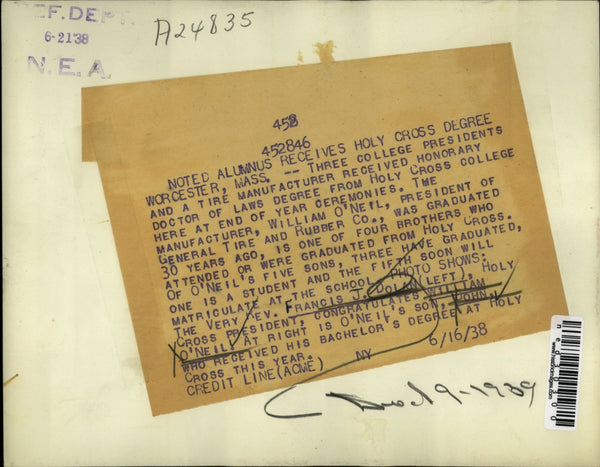 REF.DEPT.
6-21 38
N.E.A.
A24835
458
452846
NOTED ALUMNUS RECEIVES HOLY CROSS DEGREE
WORCESTER, MASS. -- THREE COLLEGE PRESIDENTS
AND A TIRE MANUFACTURER RECEIVED HONORARY
DOCTOR OF LAWS DEGREE FROM HOLY CROSS COLLEGE
HERE AT END OF YEAR CEREMONIES. THE
MANUFACTURER, WILLIAM O'NEIL, PRESIDENT OF
GENERAL TIRE AND RUBBER CO., WAS GRADUATED
30 YEARS AGO, IS ONE OF FOUR BROTHERS WHO
ATTENDED OR WERE GRADUATED FROM HOLY CROSS.
OF O'NEIL'S FIVE SONS, THREE HAVE GRADUATED,
ONE IS A STUDENT AND THE FIFTH SOON WILL
MATRICULATE AT THE SCHOOL. PHOTO SHOWS:
THE VERY REV. FRANCIS J. DOLAN (LEFT), HOLY
CROSS PRESIDENT, CONGRATULATES WILLIAM
O'NEIL. AT RIGHT IS O'NEIL'S SON, JOHN,
WHO RECEIVED HIS BACHELOR'S DEGREE AT HOLY
CROSS THIS YEAR.
CREDIT LINE (ACME) NY 6/16/38
9-1939